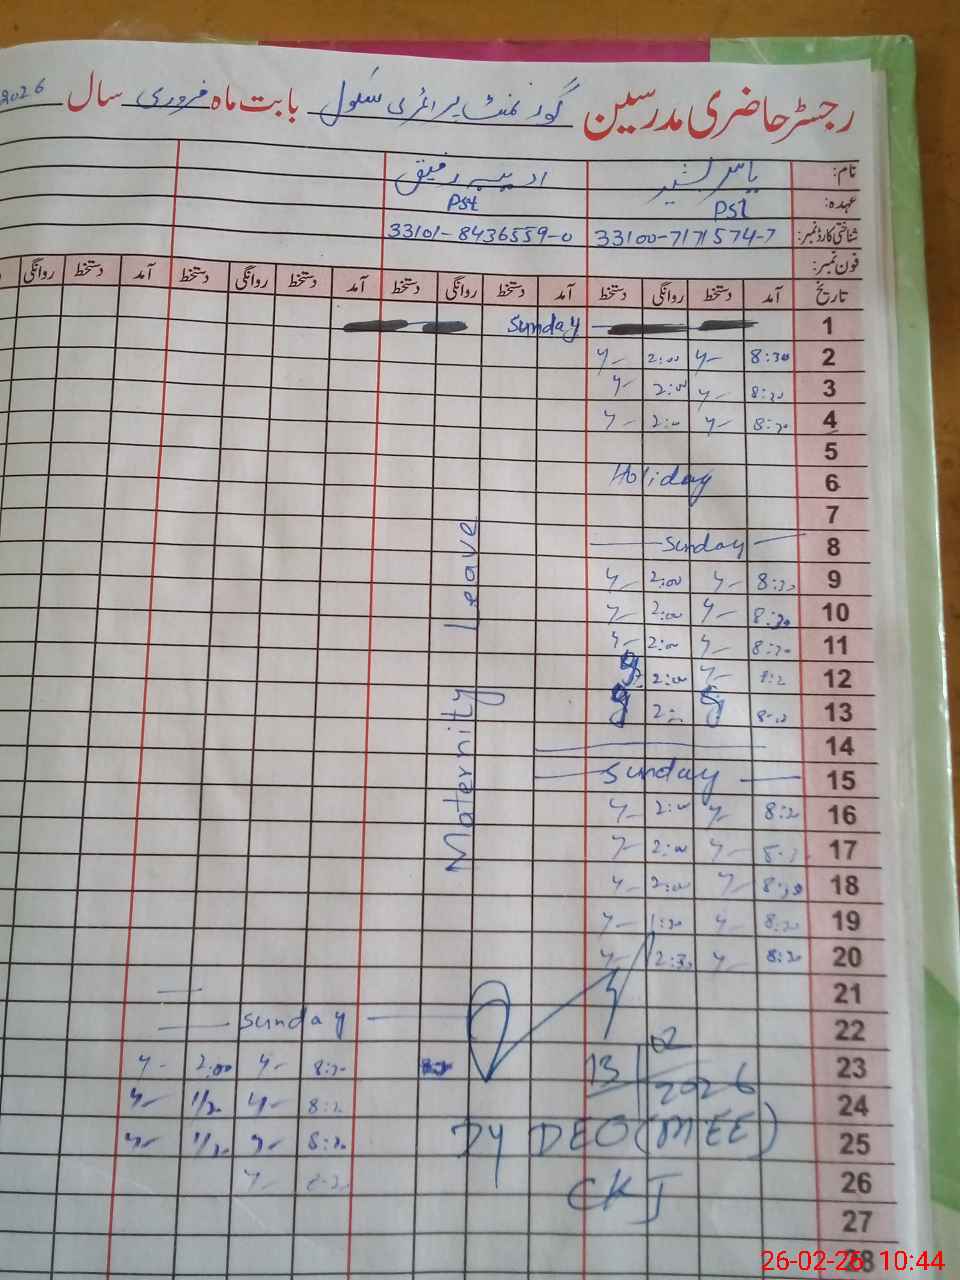 رجسٹر حاضری مدرسین گورنمنٹ پرائمری سکول بابت ماہ فروری سال 2026
نام: یاسر بشیر ادیبہ رفیق
عہدہ: PST Pst
شناختی کارڈ نمبر: 33100-7171574-7 33101-8436559-0
فون نمبر:
تاریخ آمد دستخط روانگی دستخط آمد دستخط روانگی دستخط آمد دستخط روانگی دستخط آمد دستخط روانگی
1 Sunday
2 8:30 2:00
3 8:30 2:00
4 8:30 2:00
5
6 Holiday
7
8 Sunday
9 8:30 2:00
10 8:30 2:00
11 8:30 2:00
12 2:00
13 2:00
14
15 Sunday
16 8:30 2:00
17 8:30 2:00
18 8:30 2:00
19 8:30 1:30
20 8:30 2:30
21
22 Sunday
23 8:30 2:00
24 8:30 1/30
25 8:30 1/30
26
27
28
Maternity Leave
13/02/2026
Dy DEO (MEE)
CKJ
26-02-26 10:44